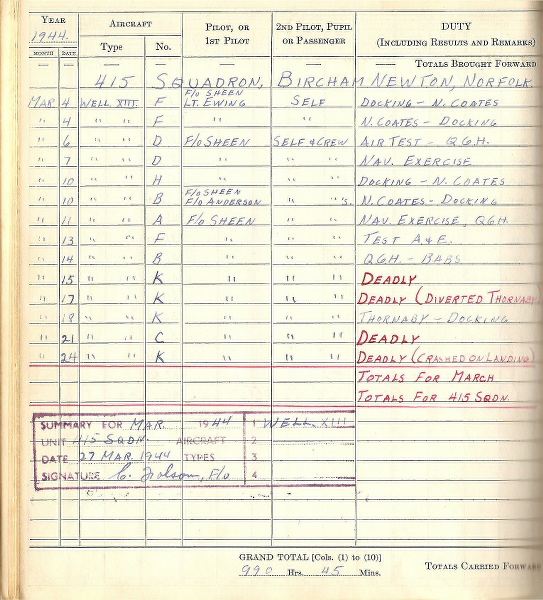 YEAR AIRCRAFT PILOT, OR 1ST PILOT 2ND PILOT, PUPIL OR PASSENGER DUTY (INCLUDING RESULTS AND REMARKS)
1944.
MONTH DATE Type No.
— — — — — — TOTALS BROUGHT FORWARD
415 SQUADRON, BIRCHAM NEWTON, NORFOLK.
MAR 4 WELL XIII. F F/O SHEEN LT. EWING SELF DOCKING - N. COATES
" 4 " " F " " N. COATES - DOCKING
" 6 " " D F/O SHEEN SELF & CREW AIR TEST - Q.G.H.
" 7 " " D " " " NAV. EXERCISE
" 10 " " H " " " DOCKING - N. COATES
" 10 " " B F/O SHEEN F/O ANDERSON " "'s. N. COATES - DOCKING
" 11 " " A F/O SHEEN " " NAV. EXERCISE, QGH.
" 13 " " F " " " TEST A & E.
" 14 " " B " " " QGH - BABS
" 15 " " K " " " DEADLY
" 17 " " K " " " DEADLY (DIVERTED THORNABY
" 18 " " K " " " THORNABY - DOCKING
" 21 " " C " " " DEADLY
" 24 " " K " " " DEADLY (CRASHED ON LANDING)
TOTALS FOR MARCH
TOTALS FOR 415 SQDN.
SUMMARY FOR MAR 1944 1 WELL. XIII
UNIT 415 SQDN. AIRCRAFT 2
DATE 27 MAR. 1944 TYPES 3
SIGNATURE C. Folsom, F/o 4
GRAND TOTAL [Cols. (1) to (10)]
990 Hrs. 45 Mins.
TOTALS CARRIED FORWARD